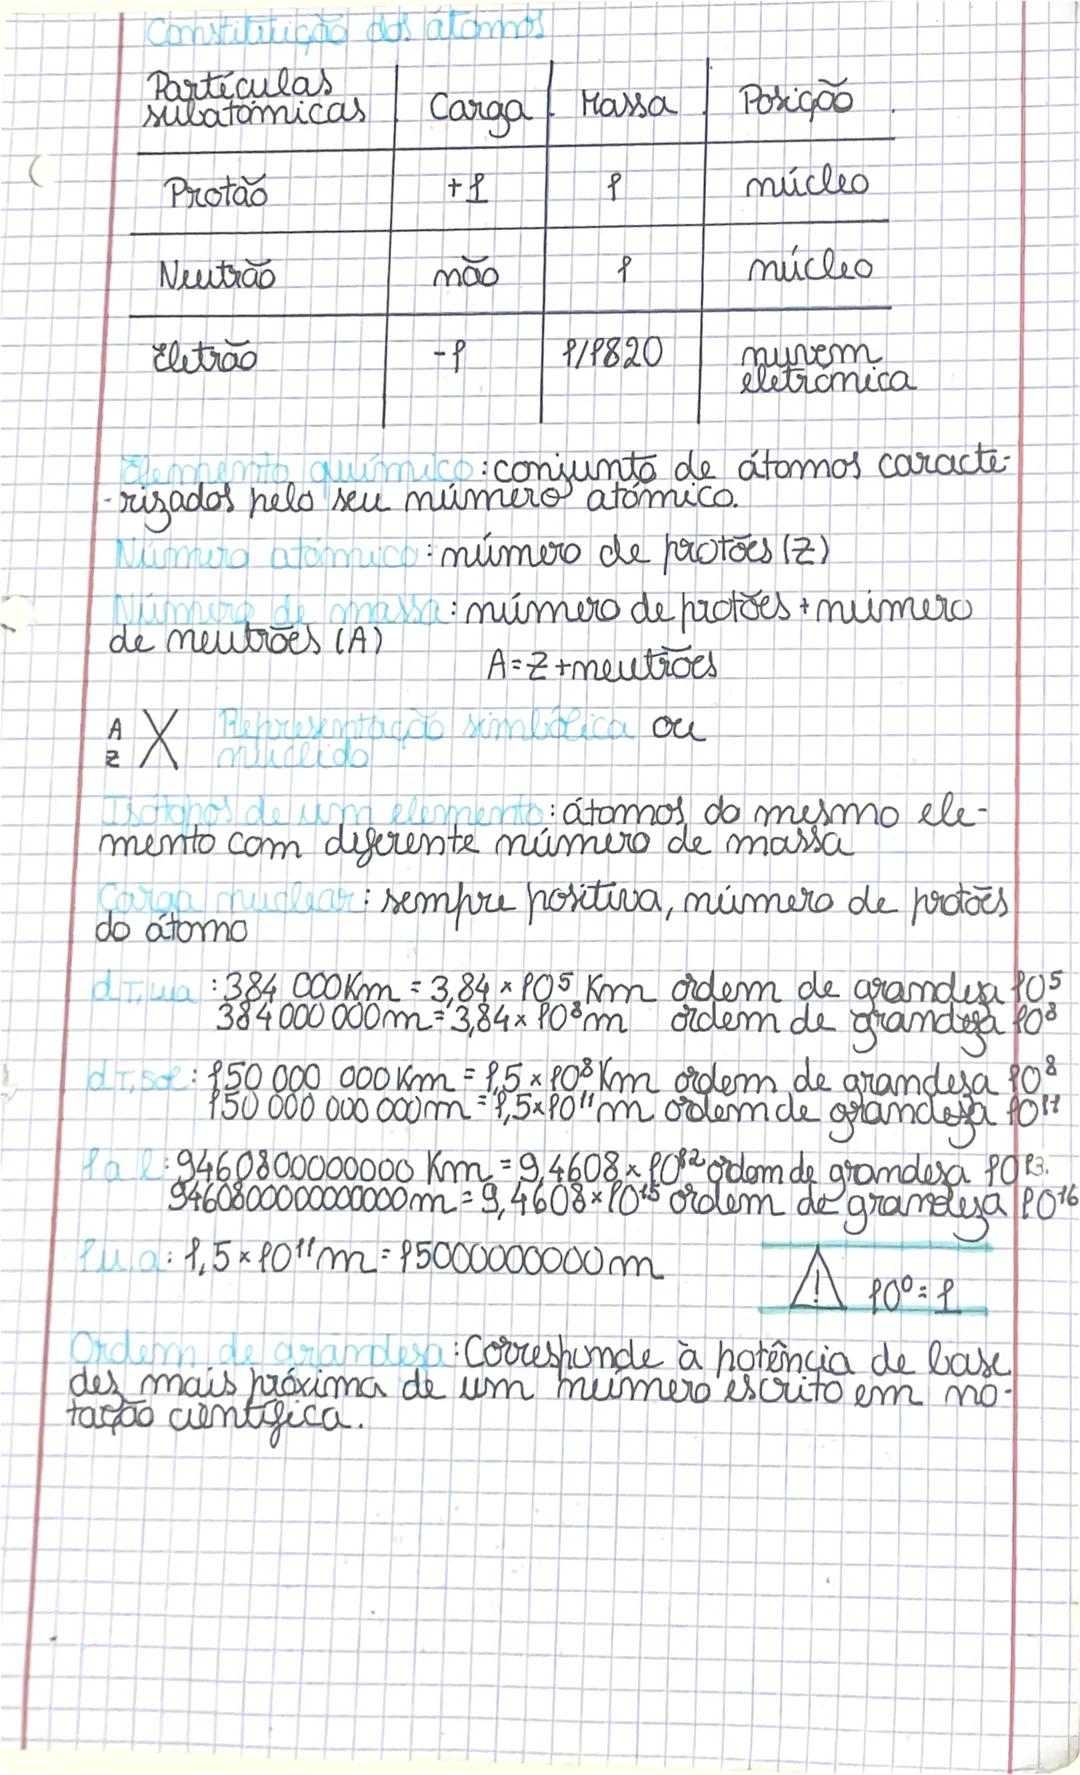 Constituição dos átomos
Partículas subatómicas | Carga | Massa | Posição
Protão | +1 | 1 | núcleo
Neutrão | não | 1 | núcleo
Eletrão | -1 | 1/1820 | nuvem eletrónica
Elemento químico: conjunto de átomos caracte-
-rizados pelo seu número atómico.
Número atómico: número de protões (Z)
Número de massa: número de protões + número
de neutrões (A)
A = Z + neutrões
A
Z X Representação simbólica ou
nuclido
Isótopos de um elemento: átomos do mesmo ele-
mento com diferente número de massa
Carga nuclear: sempre positiva, número de protões
do átomo
dT,Lua : 384 000Km = 3,84 × 10⁵ Km ordem de grandesa 10⁵
384 000 000m = 3,84 × 10⁸ m ordem de grandeza 10⁸
dT,sol : 150 000 000 Km = 1,5 × 10⁸ Km ordem de grandesa 10⁸
150 000 000 000m = 1,5×10¹¹ m ordem de grandeza 10¹¹
1 a l : 9460800000000 Km = 9,4608 × 10¹² ordem de grandesa 10¹³.
9460800000000000m = 9,4608 × 10¹⁵ ordem de grandeza 10¹⁶
1 u.a : 1,5 × 10¹¹ m = 15000000000m
! 10⁰ = 1
Ordem de grandesa: Corresponde à potência de base
dez mais próxima de um número escrito em no-
tação científica.